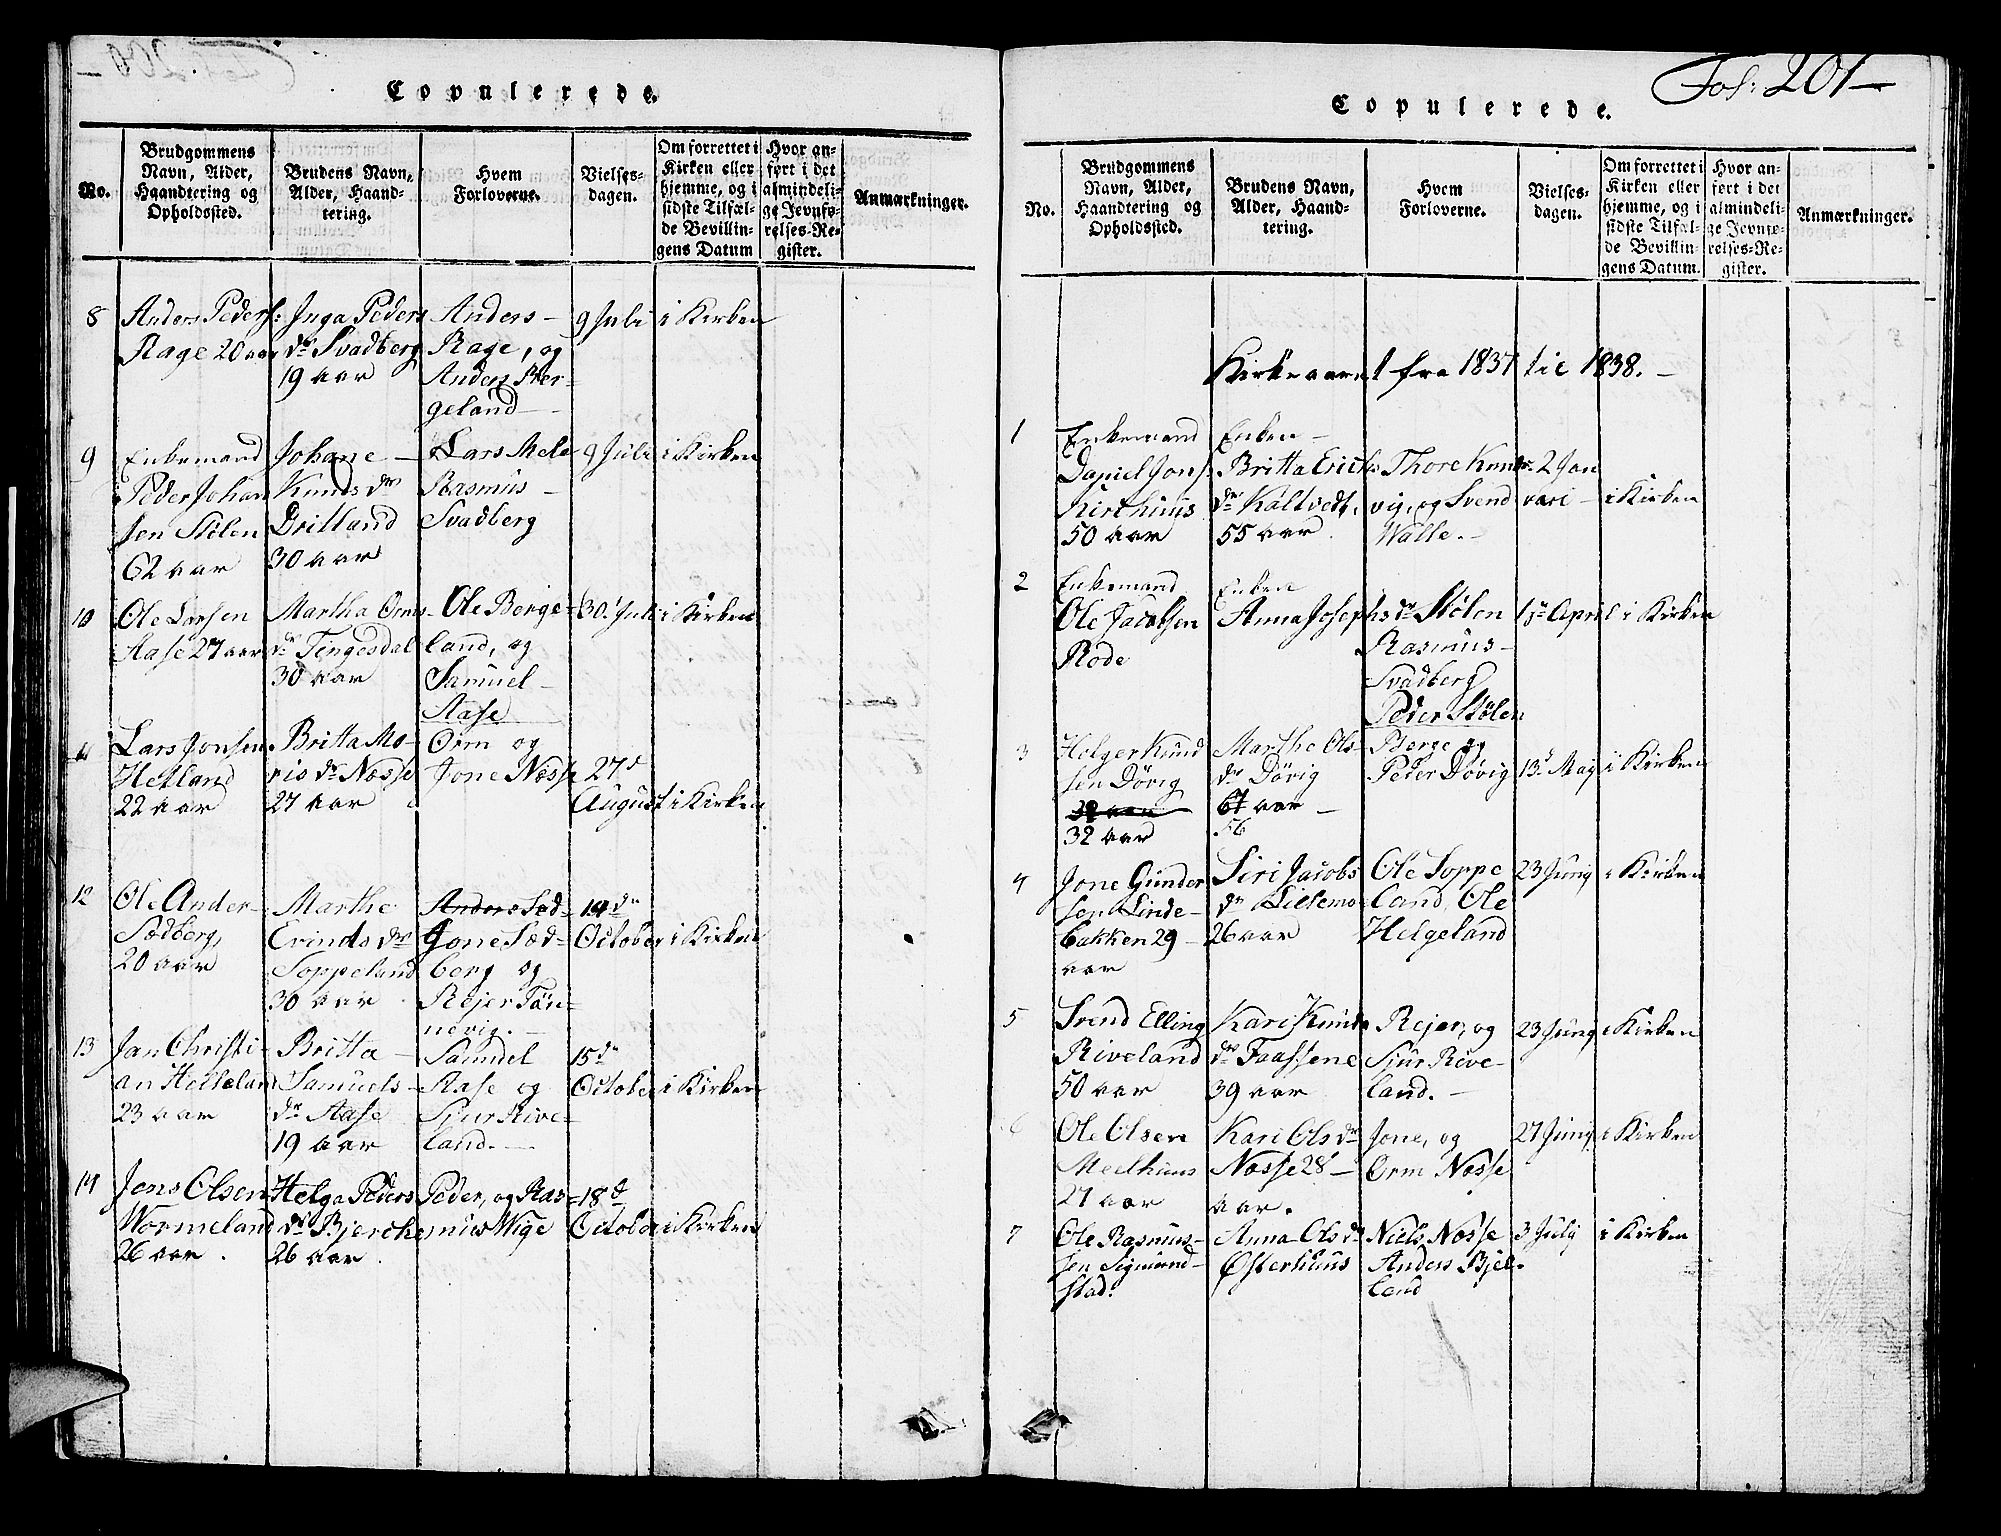 Copulerede.
No.
Brudgommens
Navn, Alder,
Haandtering og
Opholdssted.
Brudens Navn,
Alder, Haand-
tering.
Hvem
Forloverne.
Vielses-
dagen.
Om forrettet i
Kirken eller
hjemme, og i
sidste Tilfæl-
de Bevillin-
gens Datum
Hvor an-
ført i det
almindeli-
ge Jevnfø-
relses-Re-
gister.
Anmærkninger.
8
Anders Peders:
Rage 20 aar
Inga Peders
dr Svadberg
19 aar
Anders
Rage, og
Anders Ber-
geland
9 Juli
i Kirken
9
Enkemand
Peder Johan
sen Stølen
62 aar
Johane
Knuds dr
Dritland
30 aar
Lars Mele
Rasmus
Svadberg
9 Juli
i Kirken
10
Ole Larsen
Aase 27 aar
Martha Orms
dr Tengesdal
30 aar
Ole Berge-
land, og
Samuel
Aase
30. Juli
i Kirken
11
Lars Jonsen
Hetland
22 aar
Britta Mo-
ris dr Næsse
27 aar
Orm og
Jone Næsse
27d
August
i Kirken
12
Ole Ander-
Sødberg,
20 aar
Marthe
Erinds dr
Soppeland
30 aar
Anders Sæd-
Jone Sæd-
berg og
Rejer Tøn-
nevig.
14de
October
i Kirken
13
Jan Christi-
an Helleland
23 aar
Britta
Samuels
dr Aase
19 aar
Samuel
Aase og
Sjur Rive-
land.
15de
October
i Kirken
14
Jens Olsen
Wormeland
26 aar.
Helga Peders
dr Bjerche
26 aar
Peder, og Ras-
mus Wige
18d
October
i Kirken
Fol: 201
Copulerede.
No.
Brudgommens
Navn, Alder,
Haandtering og
Opholdssted.
Brudens Navn,
Alder, Haand-
tering.
Hvem
Forloverne.
Vielses-
dagen.
Om forrettet i
Kirken eller
hjemme, og i
sidste Tilfæl-
de Bevillin-
gens Datum.
Hvor an-
ført i det
almindeli-
ge Jevnfø-
relses-Re-
gister.
Anmærkninger.
Kirkeaaret fra 1837 til 1838.
1
Enkemand
Daniel Jons:
Kirchuus
50 aar
Enken
Britta Erichs
dr Kaltvedt,
55 aar.
Thore Knuds-
vig, og Svend
Walle.
2 Jan
vari
i Kirken
2
Enkemand
Ole Jacobsen
Rode
Enken
Anna Josephs dr Stølen
Rasmus
Svadberg
Peder Stølen
1ste April
i Kirken
3
Helger Knud
sen Døvig
32 aar
Marthe Ols-
dr Døvig
67 aar
56
Berge og
Peder Døvig
13d Maj
i Kirken
4
Jone Gunder
sen Linde-
bakken 29
aar
Siri Jacobs
dr Lillemo
26 aar
Ole Soppe
land, Ole
Helgeland
23 Junj
i Kirken
5
Svend Elling
Riveland
50 aar
Kari Knuds
dr Faassene
39 aar
Rejer, og
Sjur Rive-
land.
23 Junj
i Kirken
6
Ole Olsen
Meelhuus
27 aar
Kari Ols dr
Næsse 28
aar.
Jone, og
Orm Næsse
27 Junj
i Kirken
7
Ole Rasmus-
sen Sigmund-
stad.
Anna Ols dr
Østerhuus
Niels Næsse
Anders Bjel-
land
3 Julj
i Kirken